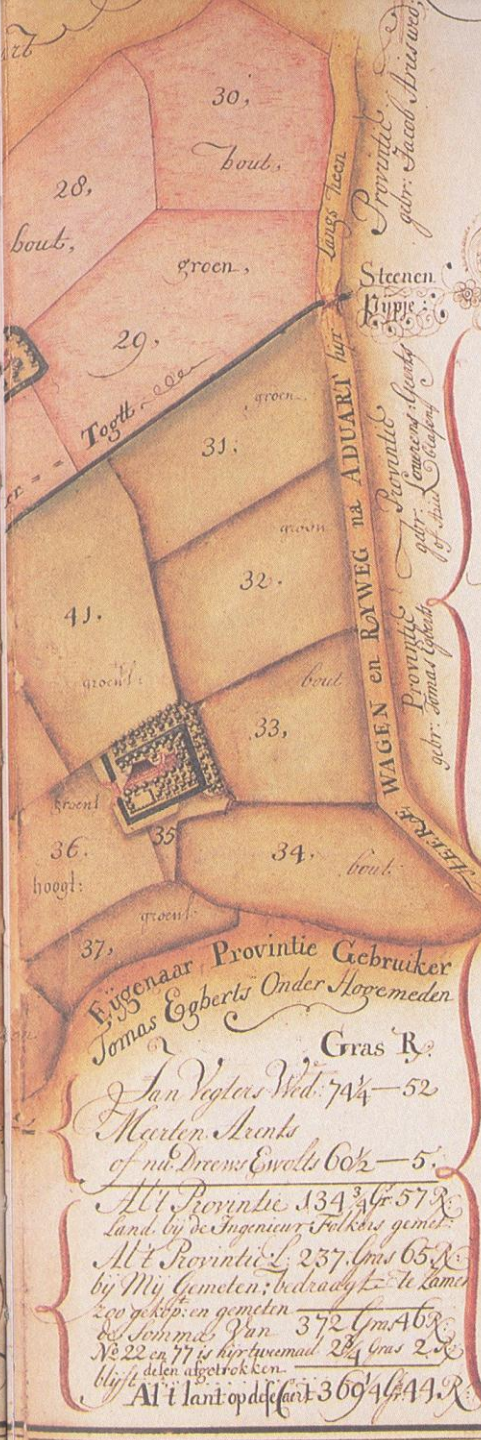 30,
bout,
28,
bout,
groen,
29,
Togtt
langs heen
Provintie
gebr: Jacob Arisswed:
Steenen
Pijpje:
groen
31:
groen
32.
41.
groent:
bout
33,
groent
35
36.
hoogt:
34.
bout
groent
37,
HEERE WAGEN en RYWEG na ADUART hyr
Provintie
gebr: Louwerens
Provintie
gebr: Tomas Egberts
Eijgenaar Provintie Gebruiker
Tomas Egberts Onder Hogemeden
Gras R.
Jan Vegters Wed: 74¼ — 52
Meerten Arents
of nu Dreews Ewolts 60½ — 5.
Al't Provintie 134¾ Gr 57 R
Land. bij de Ingenieur Folkers gemet:
Al't Provintie L: 237. Gras 65 R:
bij Mij Gemeten; bedraagt te samen
zoo gekop: en gemeten
de Somma Van 372 Gras 46 R
No. 22 en 77 is hijr tweemaal 2¾ Gras 2 R
blijft delen afgetrokken
Al't lant op dese Caert 369¼ Gr: 44 R